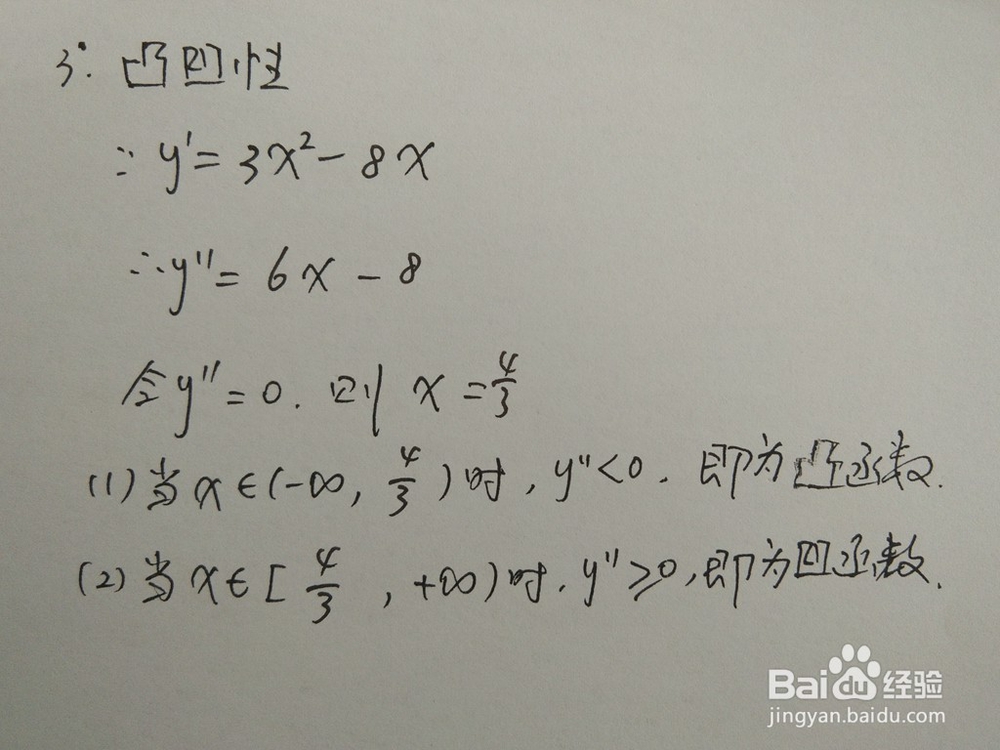 3°. 凸凹性
∵ y' = 3x² - 8x
∴ y'' = 6x - 8
令 y'' = 0. 则 x = 4/3
(1) 当 x ∈ (-∞, 4/3) 时, y'' < 0. 即为凸函数.
(2) 当 x ∈ [4/3, +∞) 时. y'' ≥ 0, 即为凹函数.
Baidu 经验
jingyan.baidu.com